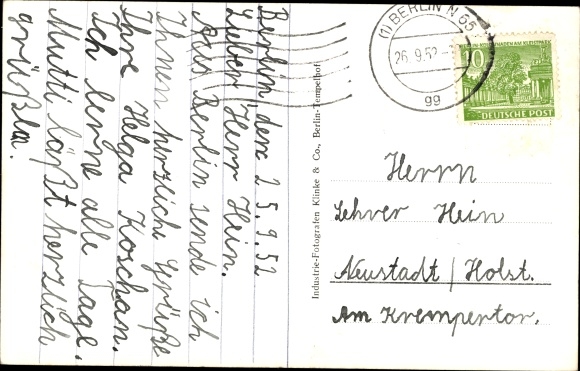 Berlin, den 25.9.52
Lieber Herr Hein.
Aus Berlin sende ich
Ihnen herzliche Grüße
Ihre Helga Koschan.
Ich lerne alle Tage.
Mutti läßt herzlich
grüßen.
Industrie-Fotografen Klinke & Co., Berlin-Tempelhof
(1) BERLIN N 65
26.9.52
gg
10
DEUTSCHE POST
Herrn
Lehrer Hein
Neustadt / Holst.
Am Krempertor.